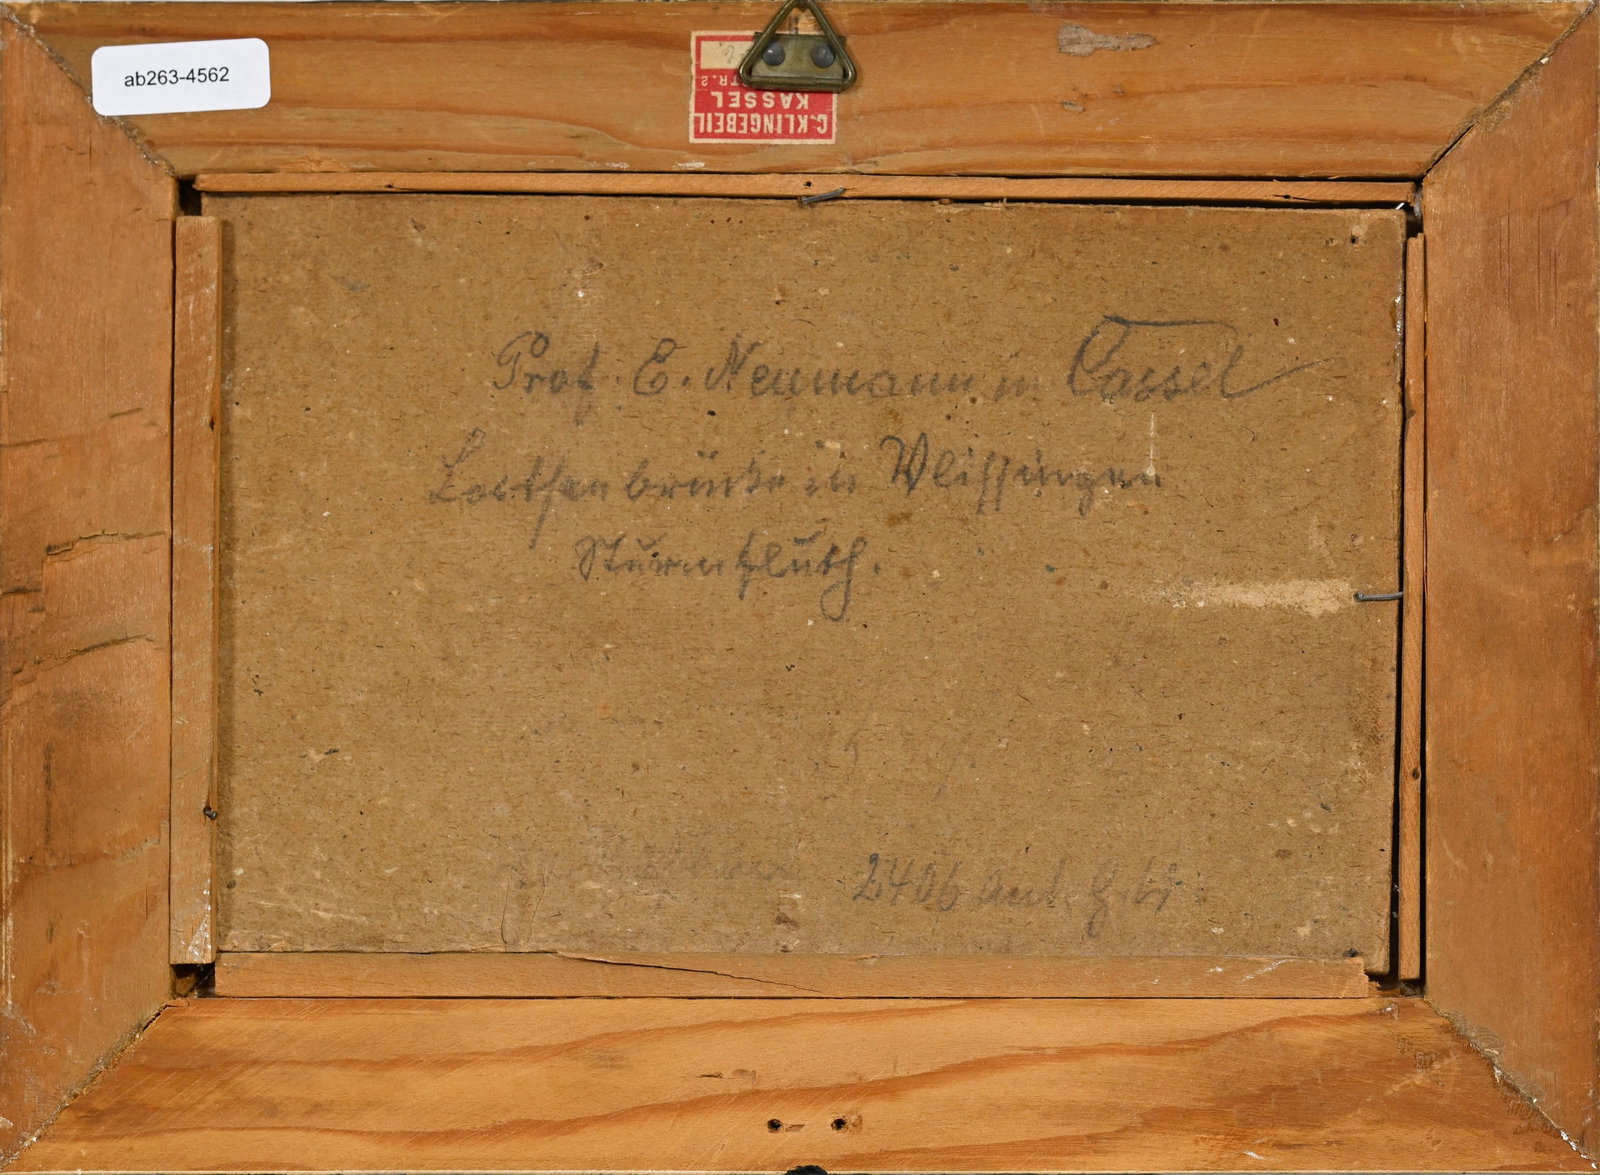 ab263-4562
C. KLINGEBEIL
KASSEL
TR. 2
Prof. E. Neumann in Cassel
Lootsenbrücke in Vlissingen
Sturmfluth.
2406